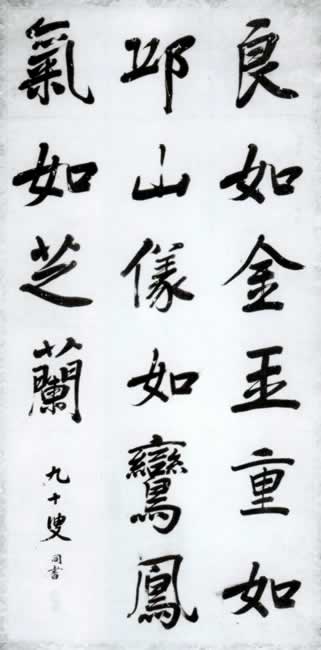 良如金玉重如
邱山儀如鸞鳳
氣如芝蘭
九十叟同書